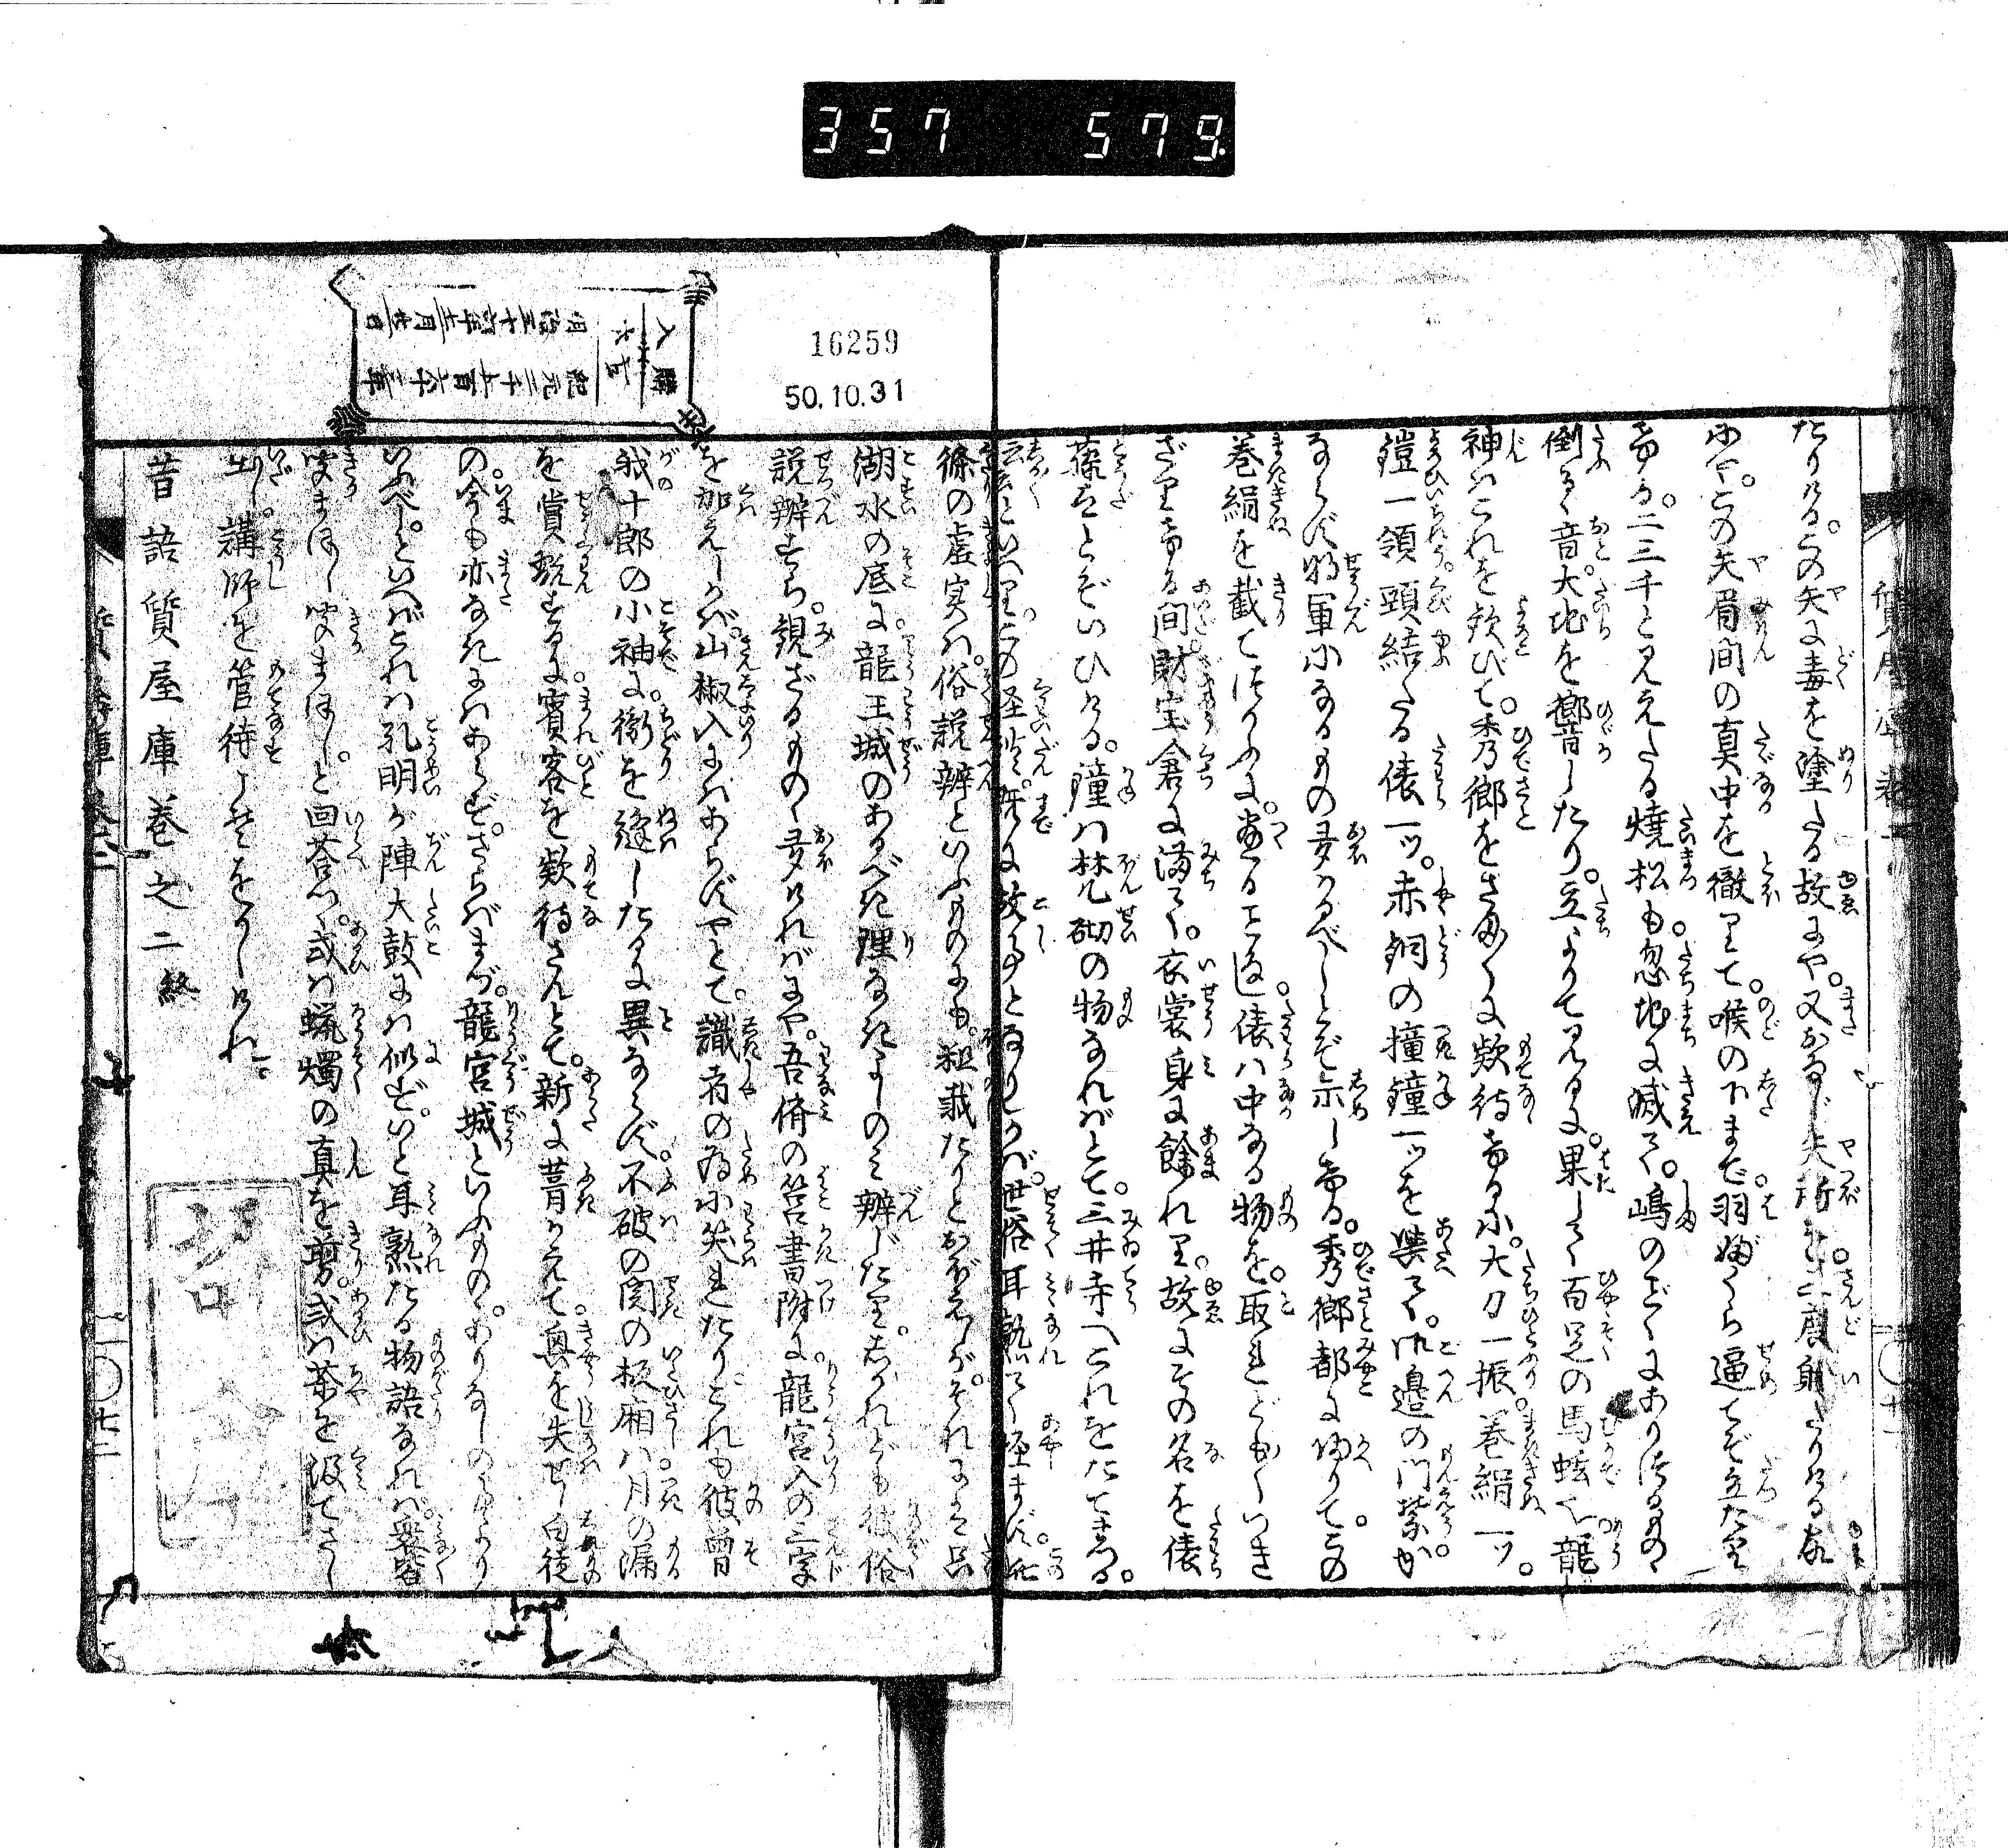 357 579.
16259
50.10.31
たりける。この矢に毒を塗たる故にや。又おなじ矢所を三度射たりける故
にや。この矢眉間の真中を徹りて。喉の下まで羽ぶくら逼てぞ立たり
ける。二三千と見えたる焼松も。忽地に滅て。嶋のごとくにありつるもの
倒るゝ音。大地を響したり。立よりて見るに。果して百足の馬蚿也。龍
神はこれを歓びて。秀郷をさま〴〵に歓待けるに。太刀一振。巻絹一ッ。
鎧一領。頭結たる俵一ッ。赤銅の撞鐘一ッを與て。御邊の門葉か
ならず将軍になるもの多かるべしとぞ示しける。秀郷都に帰りて。この
巻絹を截てつかふに。尽ることなし。俵は中なる物を。取れども〳〵つき
ざりける間。財宝倉に満て。衣裳身に餘れり。故にその名を俵
藤太とぞいひける。鐘は梵砌の物なればとて。三井寺へこれをたてまつる。
云云といへり。この怪談。既に故事となりしかば。世俗耳熟て怪まず。此
條の虚実は。俗説辨といふものにも。粗載たりとおぼえしが。それには只
湖水の底に。龍王城のあるべき理なきよしのみ辨じたり。しかれども彼俗
説辨すら。覩ざるものゝ多ければにや。吾儕の筥書附に。龍宮入の三字
を加えしかば。山椒入にはあらずやとて。識者の為に笑れたり。これも彼曽
我十郎の小袖に。衛を縫したるに異ならず。不破の関の板廂。月の漏
を賞翫するに。賓客を歓待さんとて。新に葺かえて。興を失せし白徒
の。今も亦なきにはあらず。さらばまづ。龍宮城といふものゝ。ありなしのことより
いふべし。といへばこれは孔明が陣大鼓には似ず。いと耳熟たる物語なれば。衆皆
聞まほし聞まほし。と回答つゝ。或は蝋燭の真を剪。或は茶を汲てさし
出し。講師を管待こそをかしけれ。
昔語質屋庫巻之二終